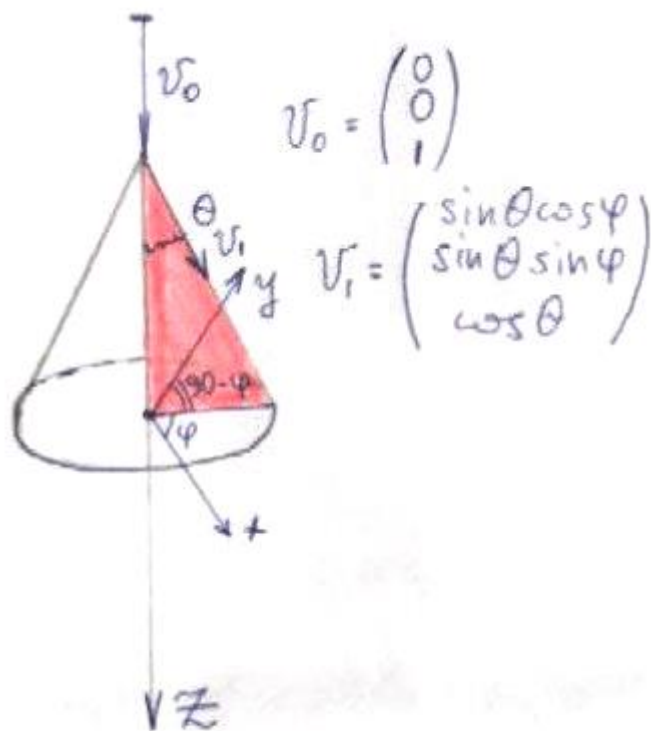 v₀
v₀ = (0
0
1)
θ
v₁
y
v₁ = (sinθcosφ
sinθ sinφ
cosθ)
90-φ
φ
x
z